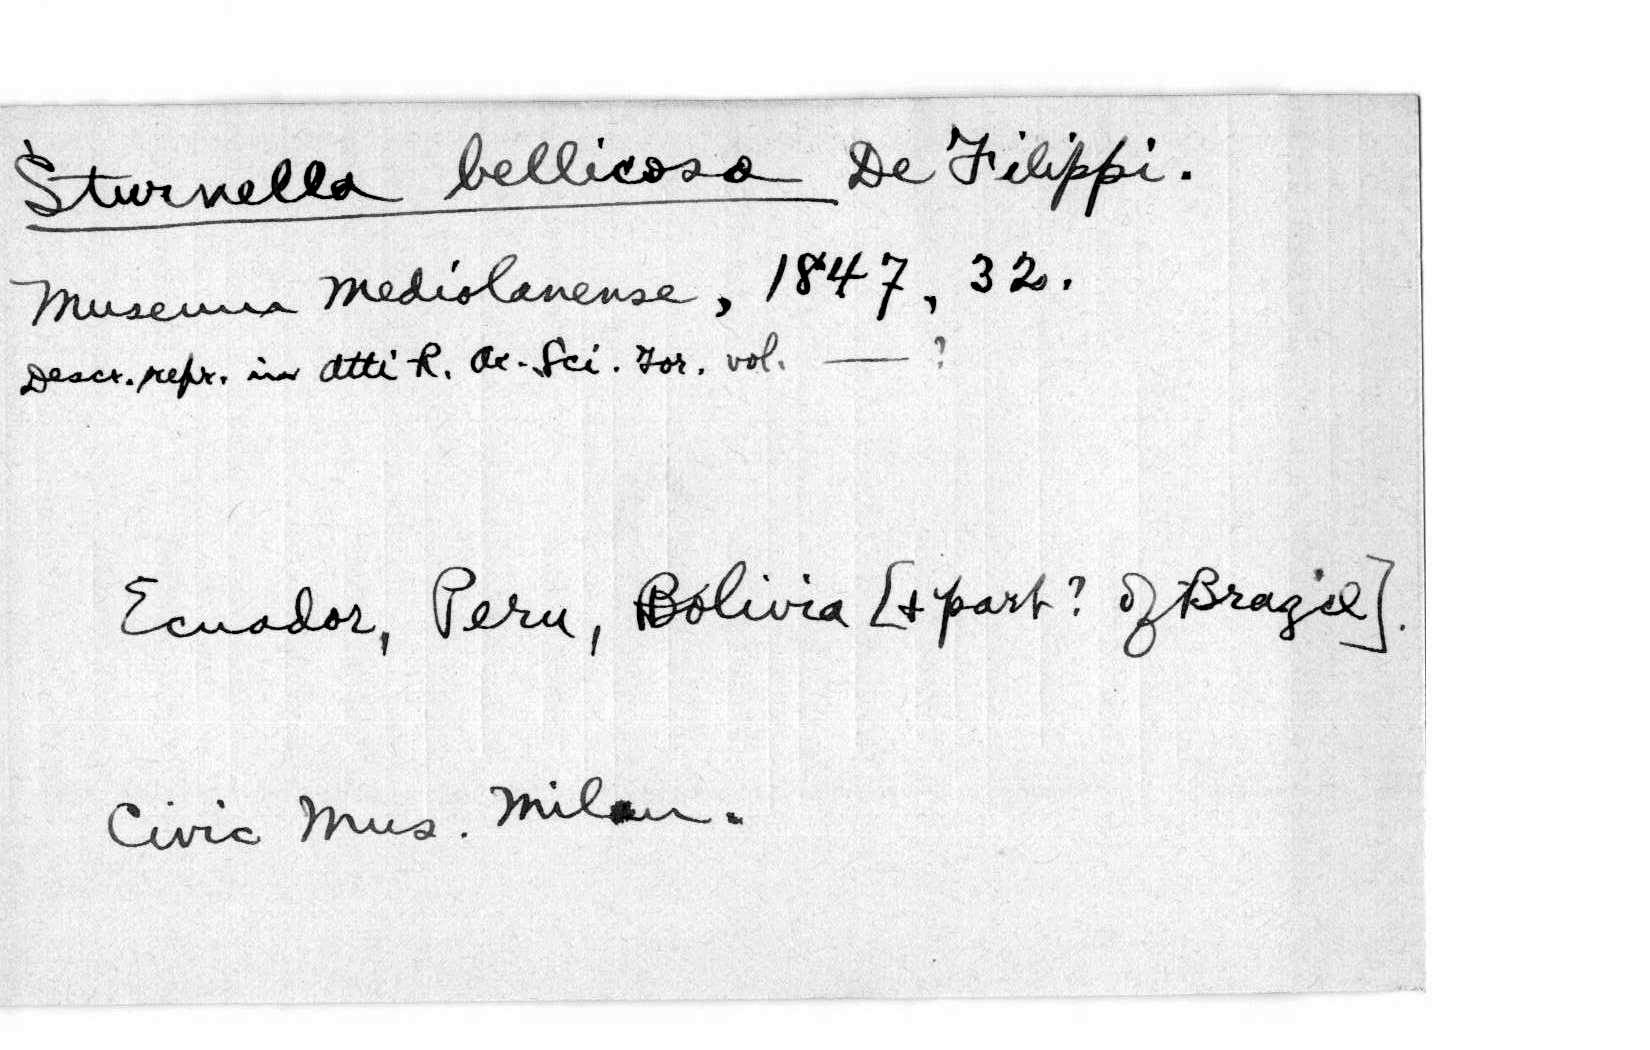 Sturnella bellicosa De Filippi.
Museum Mediolanense, 1847, 32.
Descr. repr. in Atti R. Ac. Sci. Tor. vol. — ?
Ecuador, Peru, Bolivia [+ part? of Brazil].
Civic Mus. Milan.